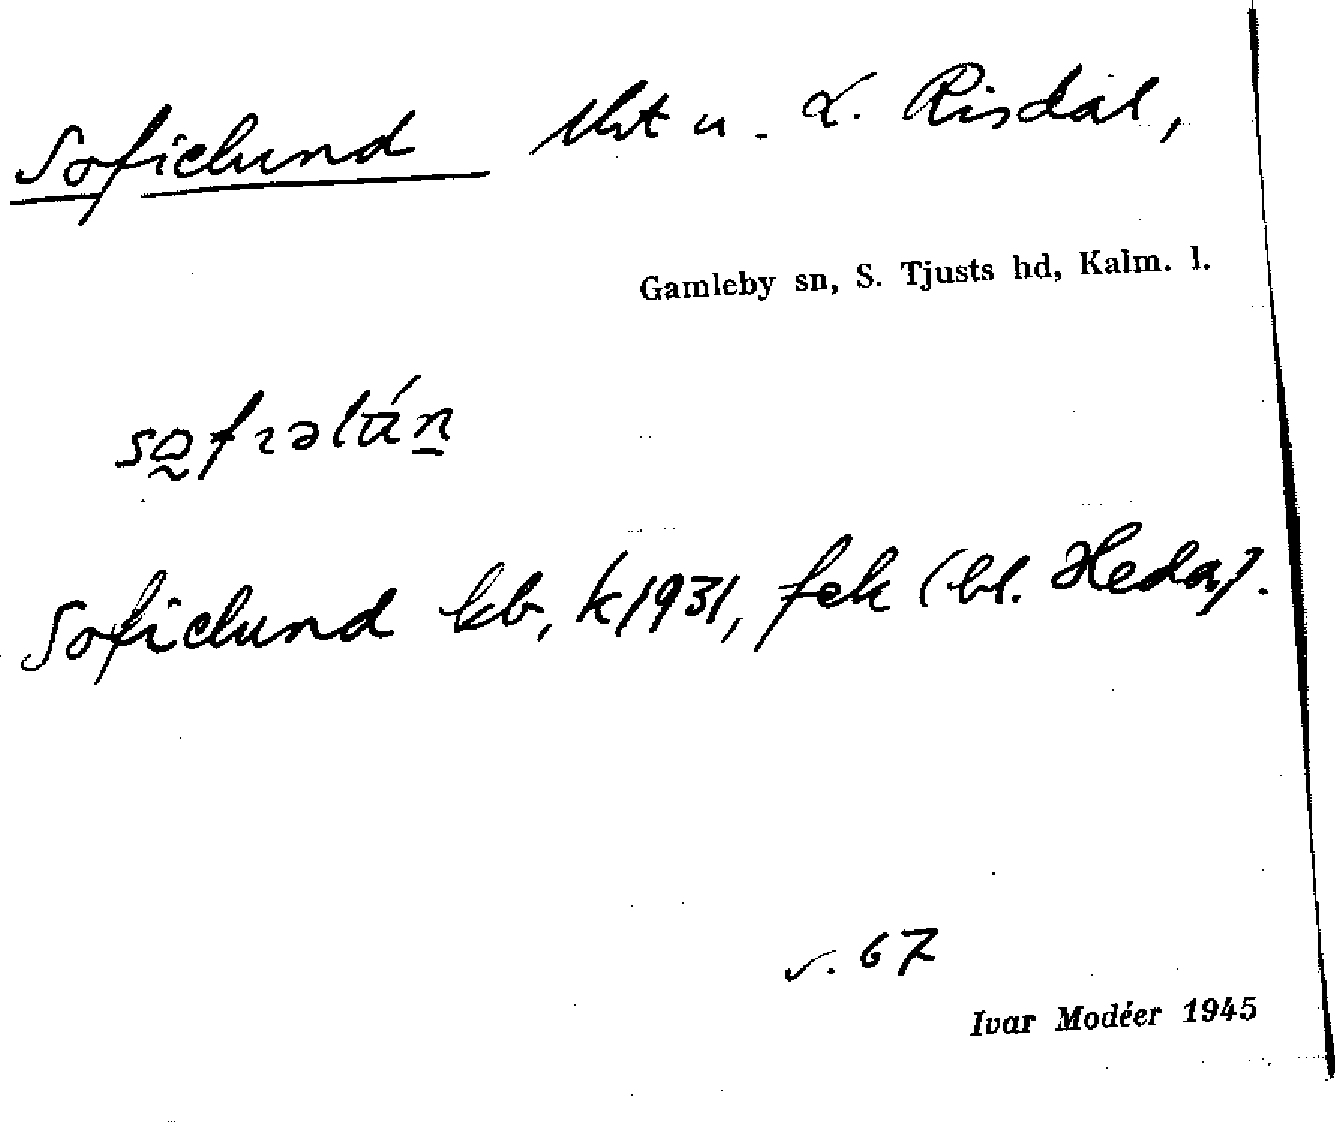 Sofielund lht u. L. Risdal,
Gamleby sn, S. Tjusts hd, Kalm. l.
Sofielund kb, k 1931, fek (bl. Heda).
s. 67
Ivar Modéer 1945